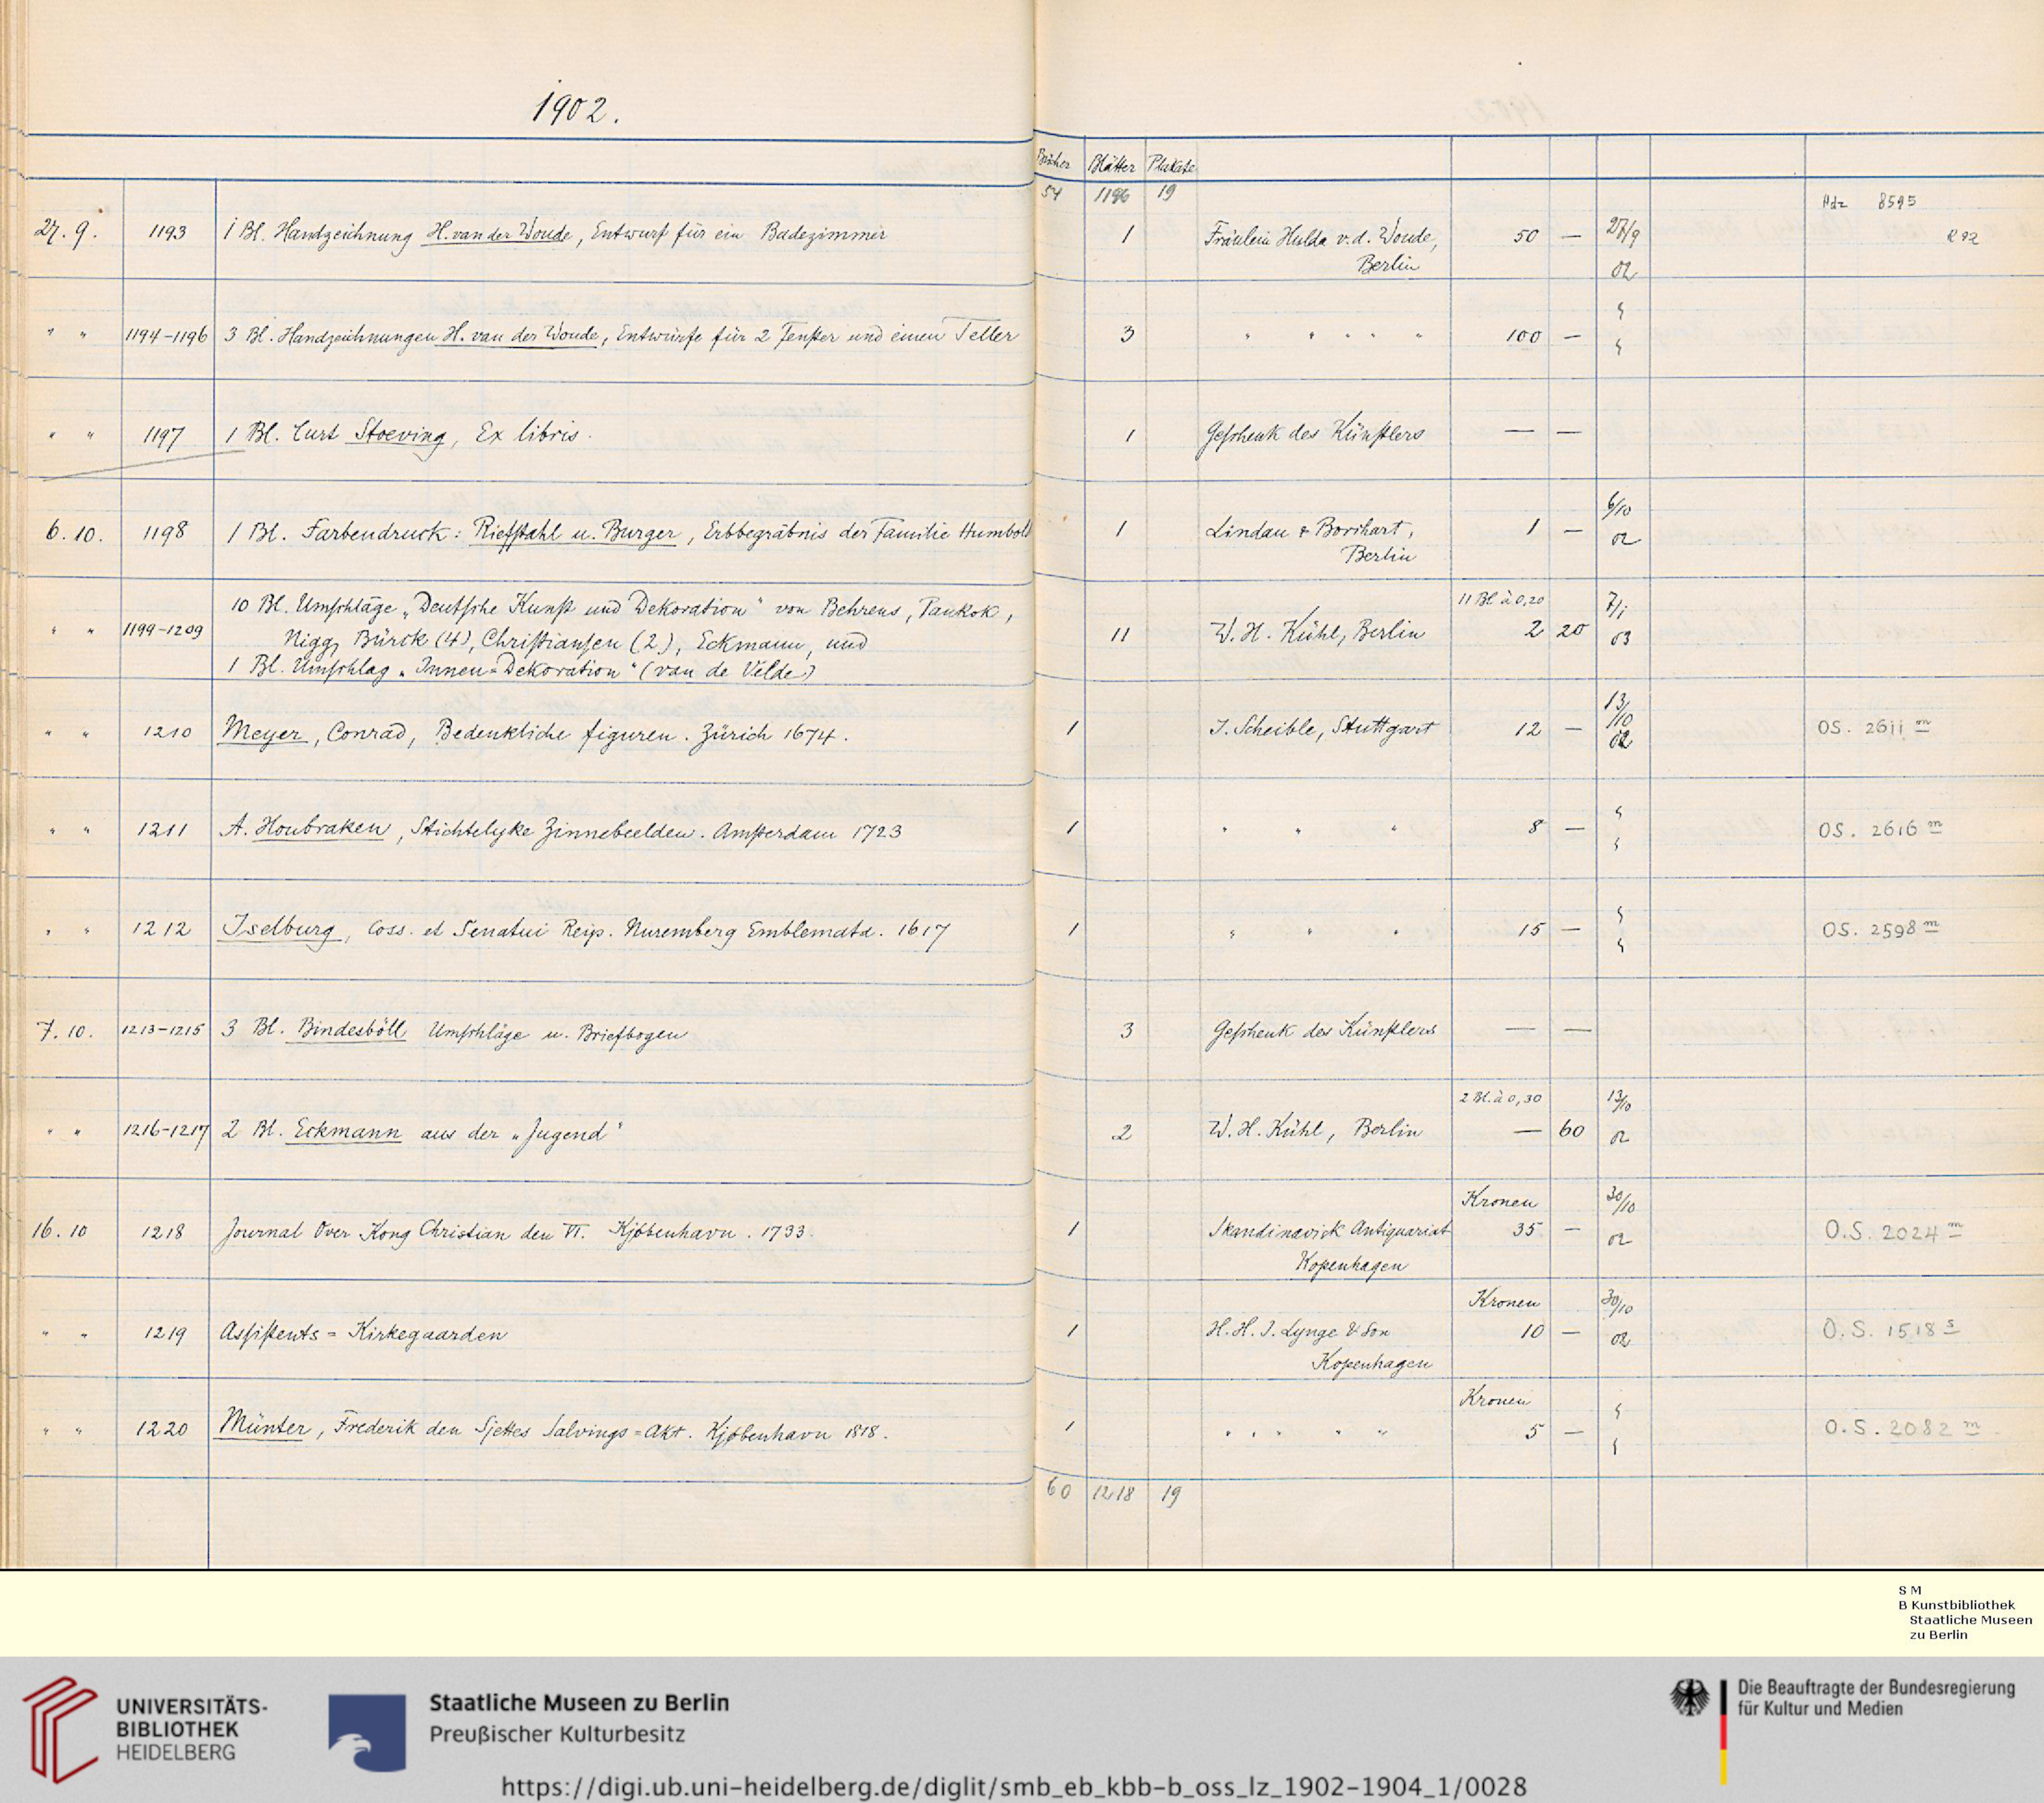 1902.
Bücher Blätter Plakate
54 1196 19
Hdz 8595
27. 9. 1193 1 Bl. Handzeichnung H. van der Woude, Entwurf für ein Badezimmer 1 Fräulein Hulda v. d. Woude, 50 — 27/9
Berlin 02
" " 1194-1196 3 Bl. Handzeichnungen H. van der Woude, Entwürfe für 2 Fenster und einen Teller 3 " " " " " 100 —
" " 1197 1 Bl. Curt Stoeving, Ex libris. 1 Geschenk des Künstlers — —
6. 10. 1198 1 Bl. Farbendruck: Riefstahl u. Burger, Erbbegräbnis der Familie Humbold 1 Lindau & Borchart, 1 — 6/10
Berlin 02
10 Bl. Umschläge „Deutsche Kunst und Dekoration" von Behrens, Pankok, 11 Bl à 0,20 7/1
" " 1199-1209 Nigg, Bürck (4), Christiansen (2), Eckmann, und 11 W. H. Kühl, Berlin 2 20 03
1 Bl. Umschlag „Innen=Dekoration" (van de Velde)
" " 1210 Meyer, Conrad, Bedenkliche figuren. Zürich 1674. 1 J. Scheible, Stuttgart 12 — 13/10 02 OS. 2611 m
" " 1211 A. Houbraken, Stichtelyke Zinnebeelden. Amsterdam 1723 1 " " " 8 — OS. 2616 m
" " 1212 Iselburg, Coss. et Senatui Reip. Nuremberg Emblemata. 1617 1 " " " 15 — OS. 2598 m
7. 10. 1213-1215 3 Bl. Bindesböll Umschläge u. Briefbogen 3 Geschenk des Künstlers — —
2 Bl. à 0,30 13/10
" " 1216-1217 2 Bl. Eckmann aus der „Jugend" 2 W. H. Kühl, Berlin — 60 02
Kronen 30/10
16. 10 1218 Journal Over Kong Christian den VI. Kjøbenhavn. 1733. 1 Skandinavisk Antiquariat 35 — 02 O.S. 2024 m
Kopenhagen
Kronen 30/10
" " 1219 Assistents = Kirkegaarden 1 H. H. J. Lynge & Son 10 — 02 O.S. 1518 s
Kopenhagen
Kronen
" " 1220 Münter, Frederik den Sjettes Salvings=Akt. Kjøbenhavn 1818. 1 " " " " " 5 — O.S. 2082 m
60 1218 19
S M
B Kunstbibliothek
Staatliche Museen
zu Berlin
UNIVERSITÄTS-
BIBLIOTHEK
HEIDELBERG
Staatliche Museen zu Berlin
Preußischer Kulturbesitz
Die Beauftragte der Bundesregierung
für Kultur und Medien
https://digi.ub.uni-heidelberg.de/diglit/smb_eb_kbb-b_oss_lz_1902-1904_1/0028